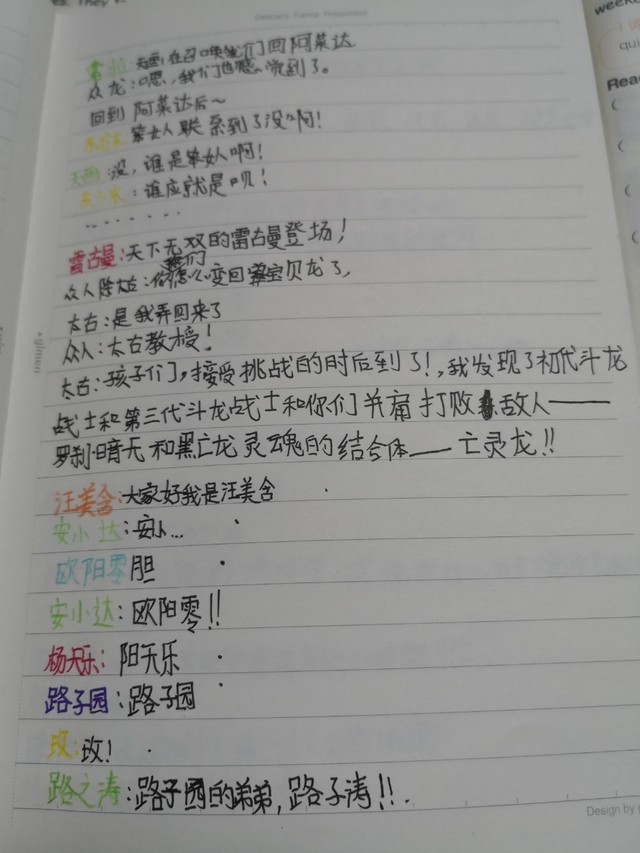 They
Delicacy Family Happiness
众龙：嗯，我们也感觉到了。
回到阿菜达后～
笨女人联系到了没啊！
没，谁是笨女人啊！
：谁应就是呗！
········
雷古曼：天下无双的雷古曼登场！
众人除太右：你们怎么变回宝贝龙了，
太右：是我弄回来了
众人：太右教授！
太右：孩子们，接受挑战的时后到了！，我发现了初代斗龙
战士和第三代斗龙战士和你们并肩打败敌人——
罗刹·暗天和黑亡龙灵魂的结合体——亡灵龙！！
汪美含：大家好我是汪美含
安小达：安小…
欧阳零胆
安小达：欧阳零！！
杨天乐：阳天乐
路子园：路子园
玫：玫！
路之涛：路子园的弟弟，路子涛！！.
Design by
week
qui
Rea